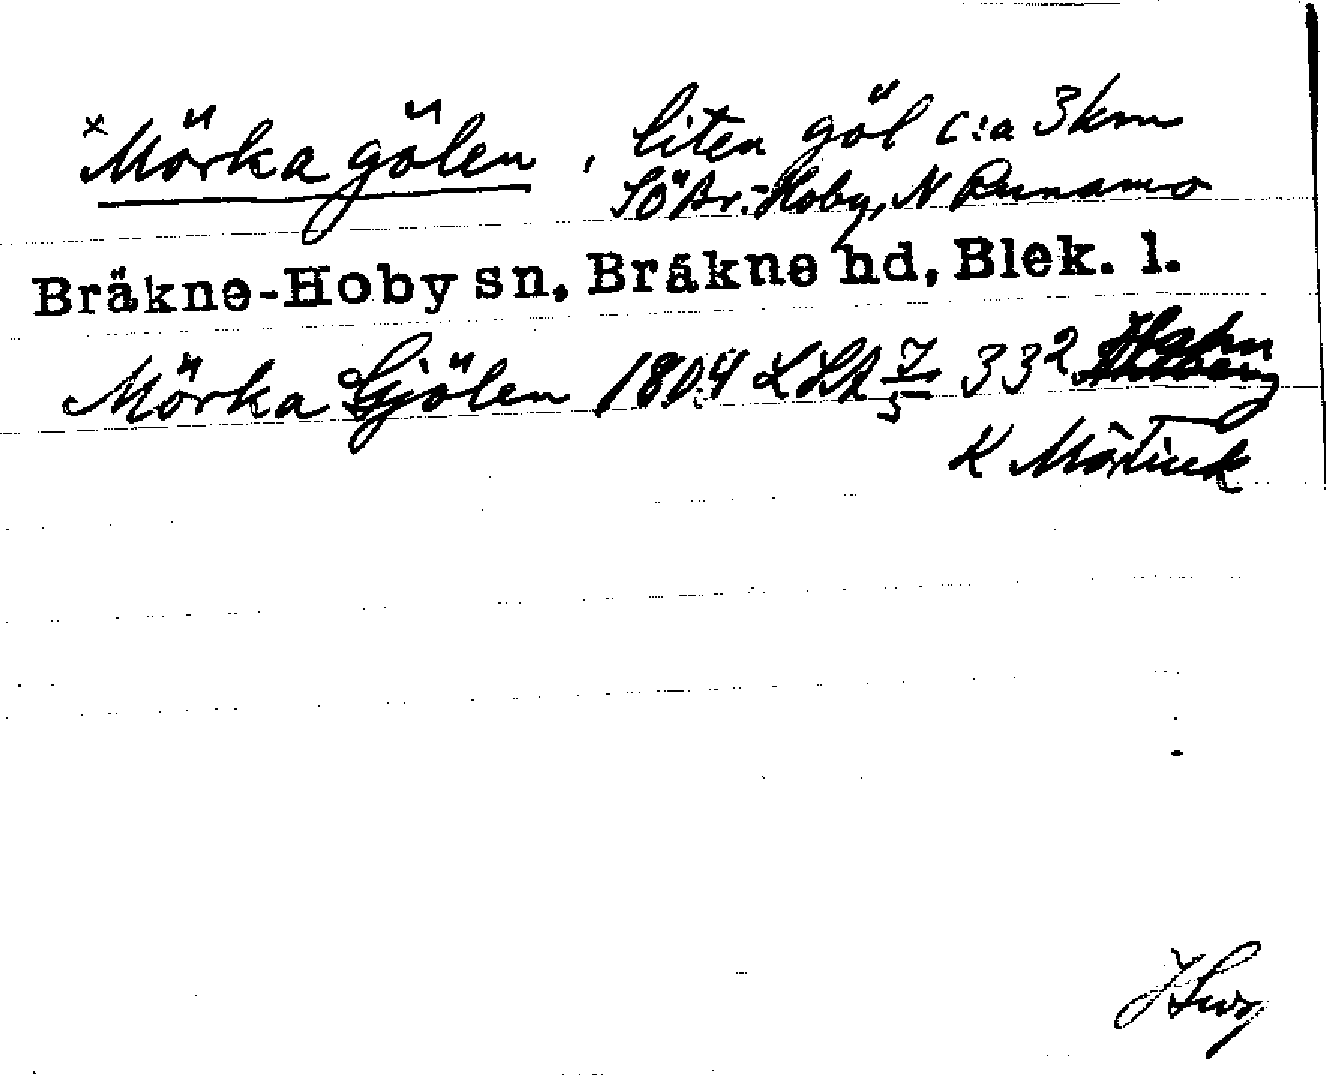 × Mörka gölen, liten göl c:a 3 km
SÖ Br.-Hoby, N Runamo
Bräkne-Hoby sn, Bräkne hd, Blek. l.
Mörka Gjölen 1804 LSA 7/5 332
K